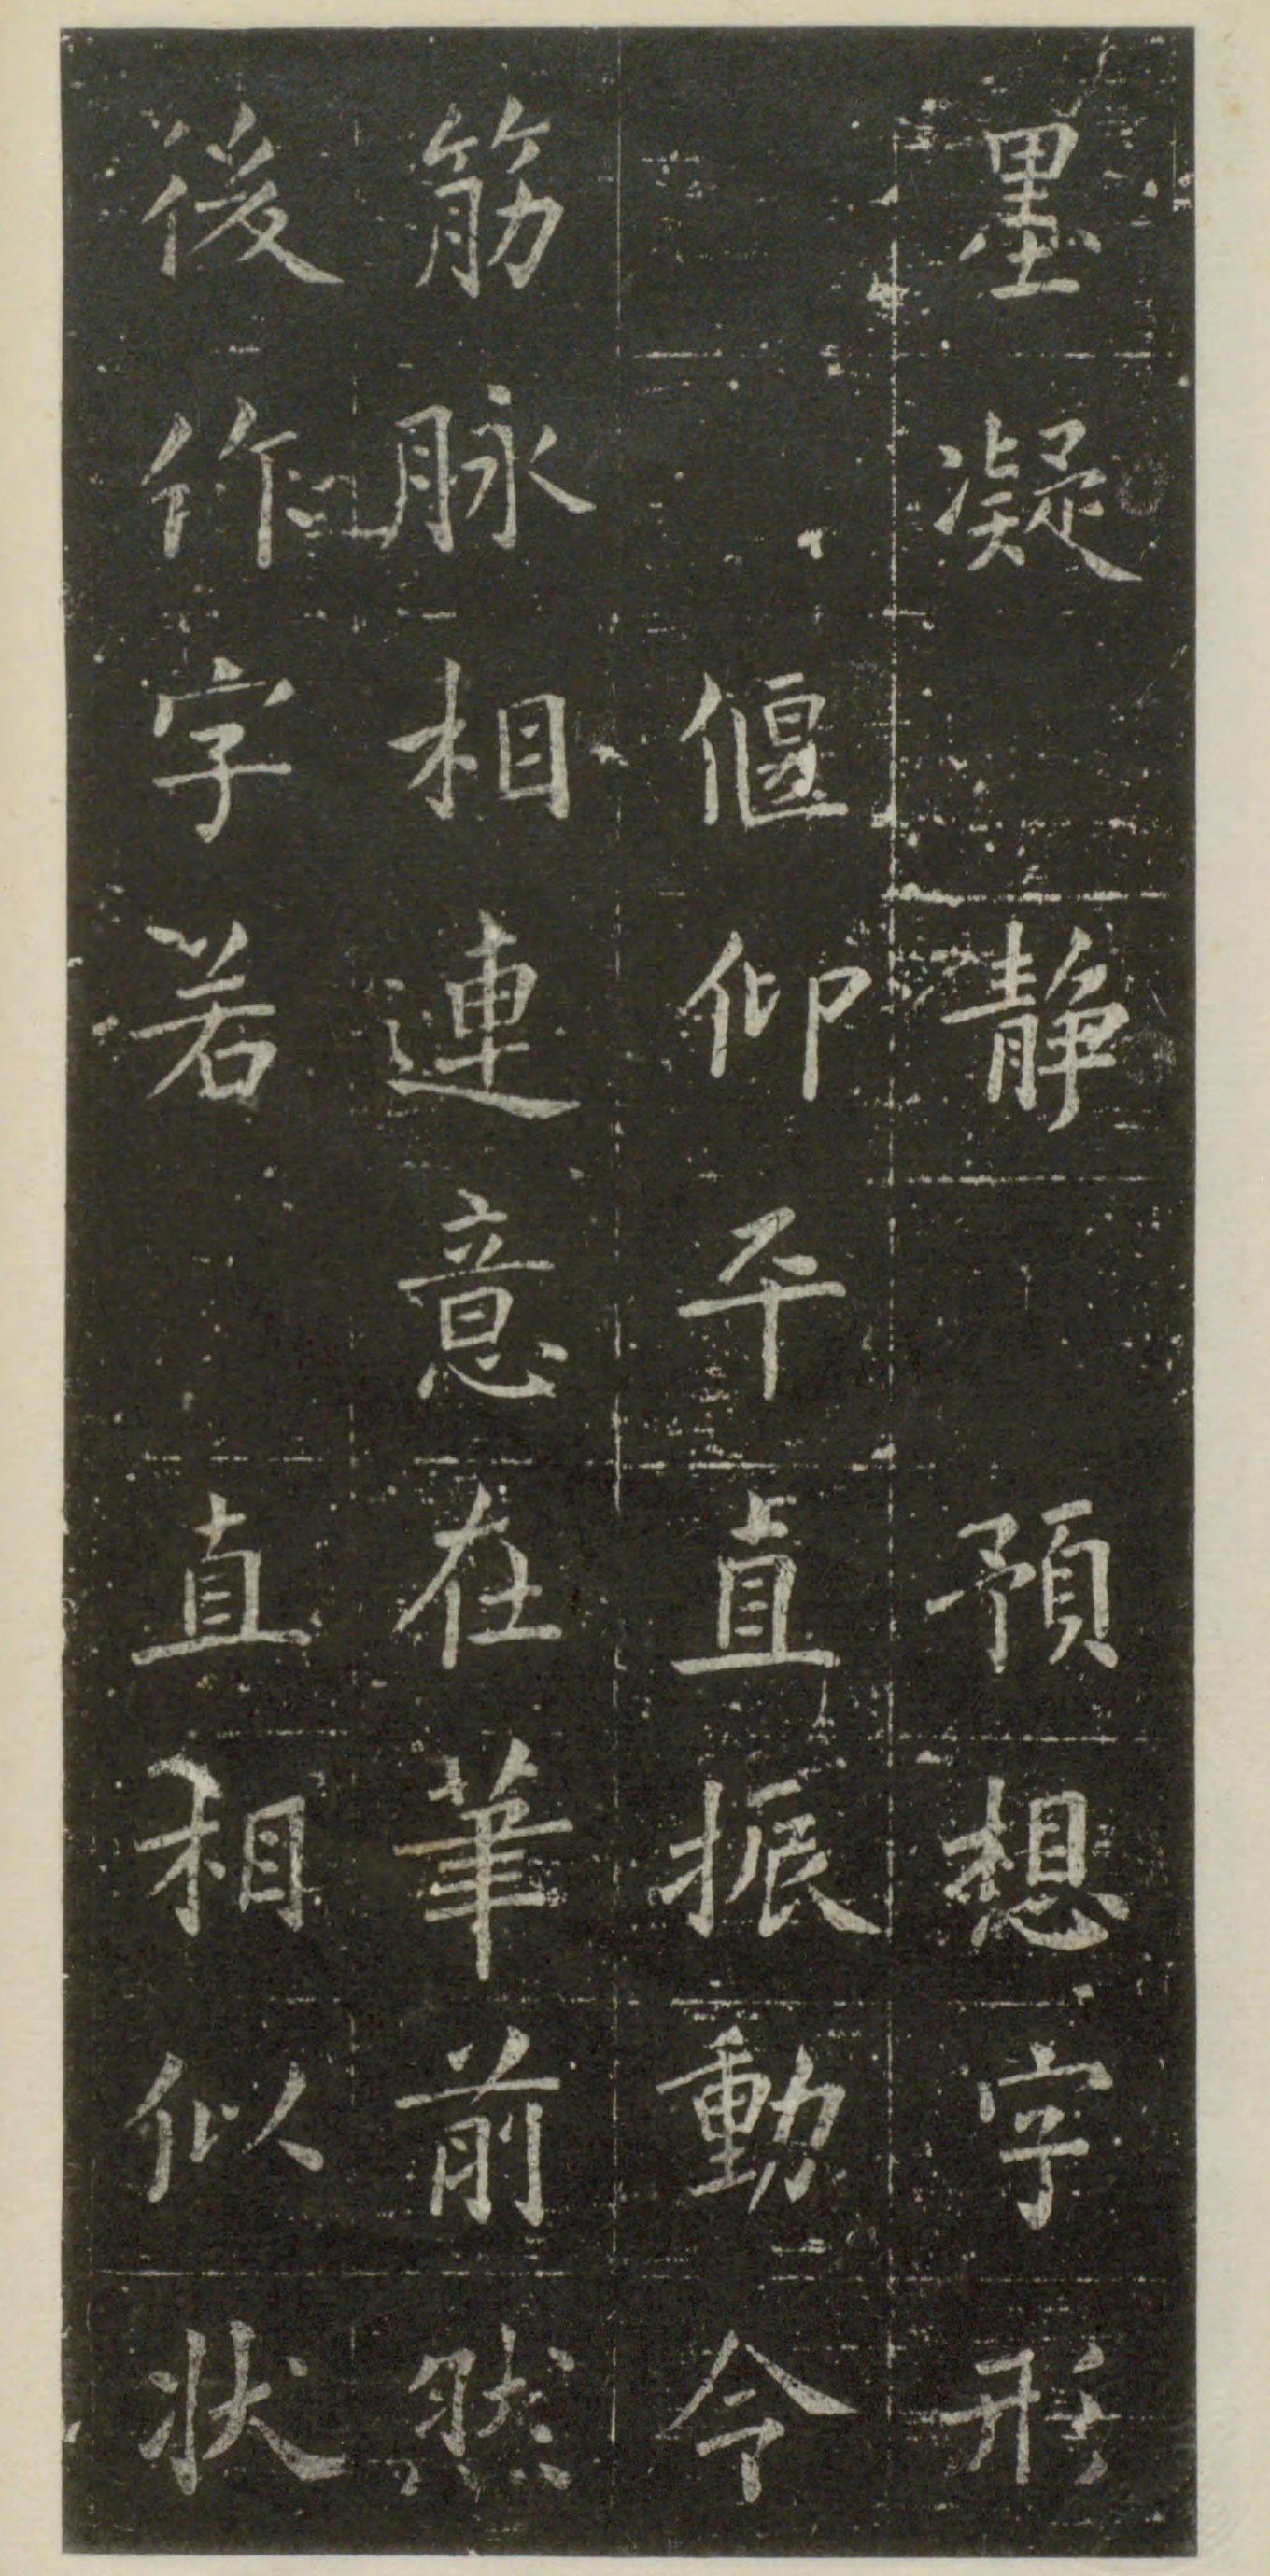 墨凝静預想字形
偃仰平直振動令
筋脉相連意在筆前然
後作字若直相似狀